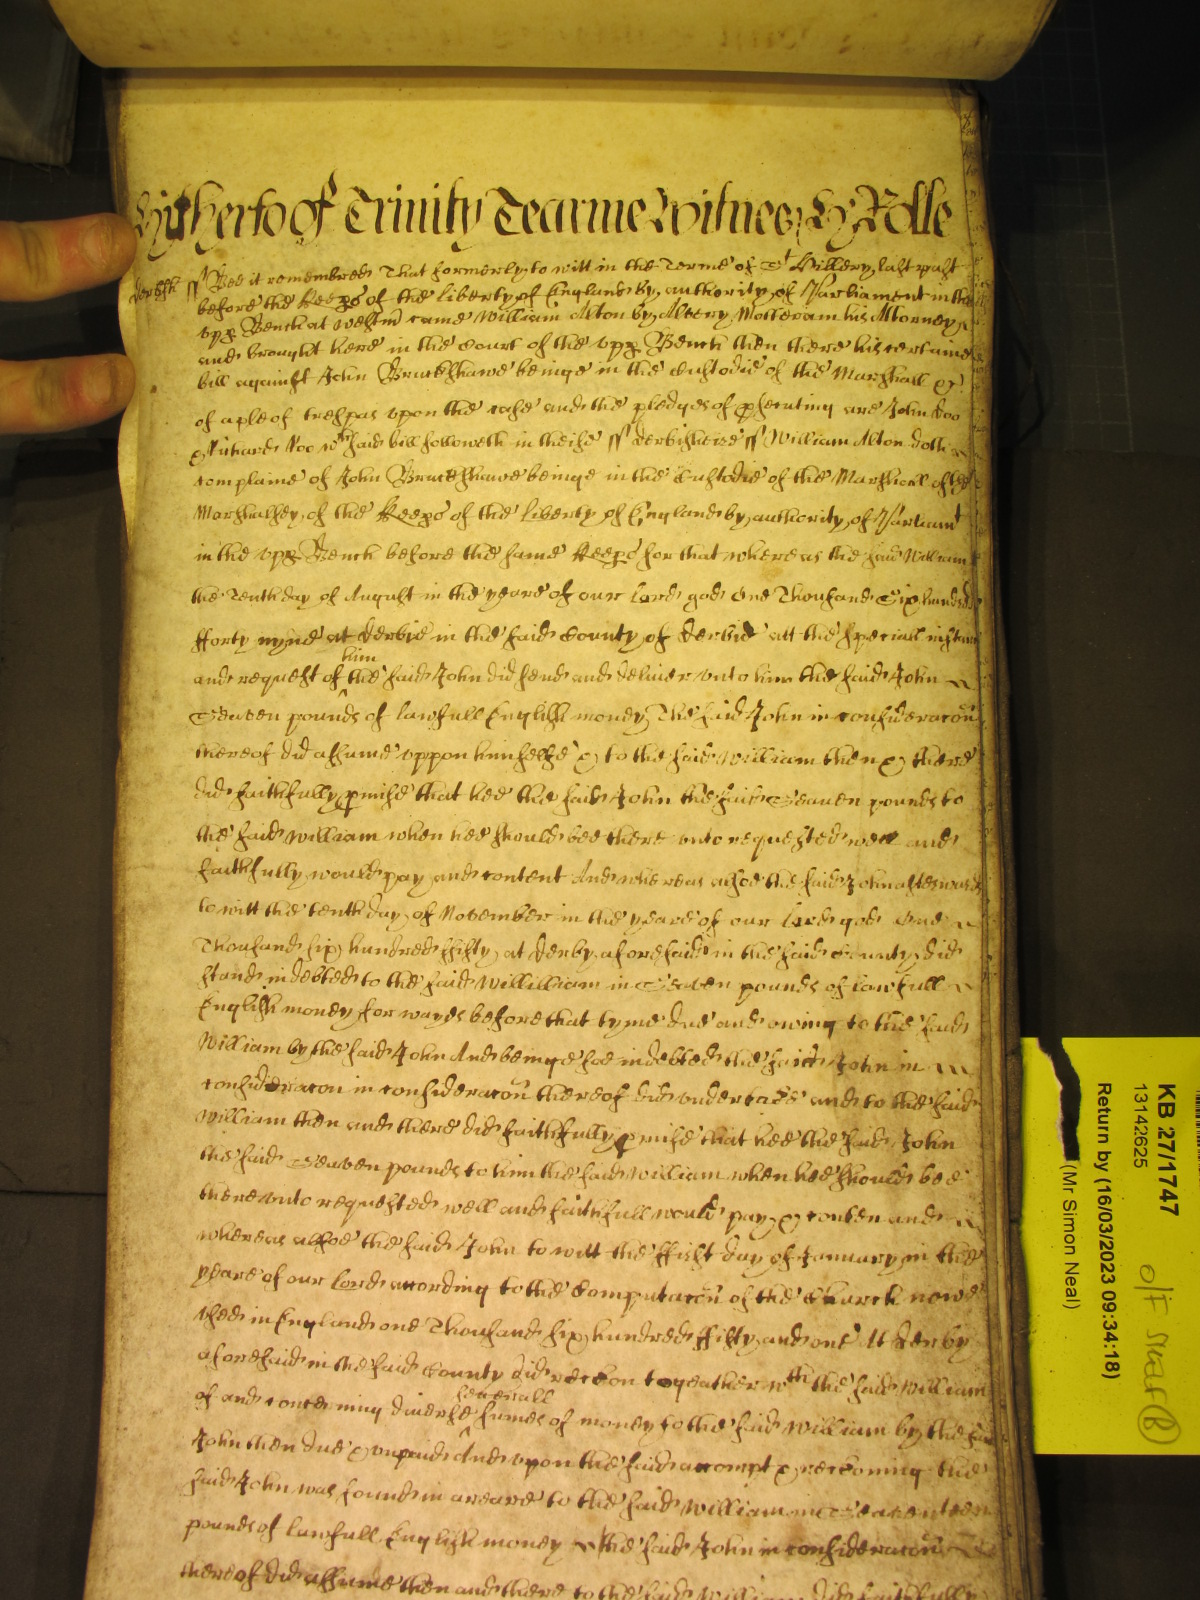 Hitherto of Trinity Tearme Witnes H Rolle
Derbsh ss Bee it remembred That formerly to witt in the Terme of St Hillery last past
before the Keeps of the liberty of England by authority of Parliament in the
upp Bench at Westm came William Alton by Alvery Motteram his Attorney
and brought here in the Court of the upp Bench then there his certaine
bill against John Bruckshawe beinge in the Custodie of the Marshall &c
of a ple of trespas upon the case and the pledges of psecuting are John Doo
& Richard Roo wch said bill followeth in theise ss Derbisheire ss William Alton doth
complaine of John Bruckshawe beinge in the Custodie of the Marshall of the
Marshallsey of the Keeps of the liberty of England by authority of Parliamt
in the upp Bench before the same Keeps for that whereas the said William
the Tenth day of August in the yeare of our Lord god One Thousand Six hundred
fforty nyne at Derbie in the said County of Derbie att the speciall instance
and request of him the said John did lend and deliver unto him the said John
Seaven pounds of lawfull English money The said John in consideracon
thereof did assume uppon himselfe & to the said William then & there
did faithfully pmise that hee the said John the said Seaven pounds to
the said William when hee should bee there unto requested well and
faithfully would pay and content And whereas alsoe the said John afterwards
to witt the tenth day of November in the yeare of our Lord god One
Thousand six hundred ffifty at Derby aforesaid in the said County did
stand indebted to the said Willilliam in Seaven pounds of lawfull
English money for wages before that tyme due and owing to the said
William by the said John And beinge soe indebted the said John in
consideracon in consideracon thereof did undertake and to the said
William then and there did faithfully pmise that hee the said John
the said Seaven pounds to him the said William when hee should bee
thereunto requested well and faithfull would pay & conten and
whereas alsoe the said John to witt the ffisht day of January in the
yeare of our Lord according to the Computacon of the Church nowe
used in England one Thousand six hundred ffifty and one At Derby
aforesaid in the said County did reckon togeather wth the said William
of and concerning diverse severall sumes of money to the said William by the said
John then due & unpaid And upon the said accompt & reckoning the
said John was found in areare to the said William in Seaventeen
pounds of lawfull English money the said John in consideracon
thereof did assume then and there to the said William did faithfully
KB 27/1747
13142625
Return by (16/03/2023 09:34:18)
(Mr Simon Neal)
O/F
(B)